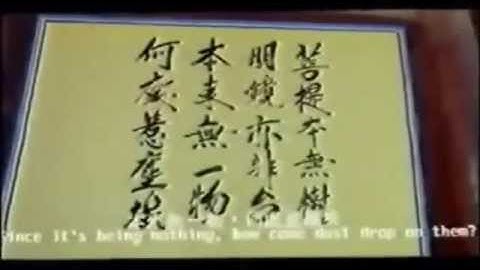 菩提本無樹
明鏡亦非台
本來無一物
何處惹塵埃
since it's being nothing, how come dust drop on them?